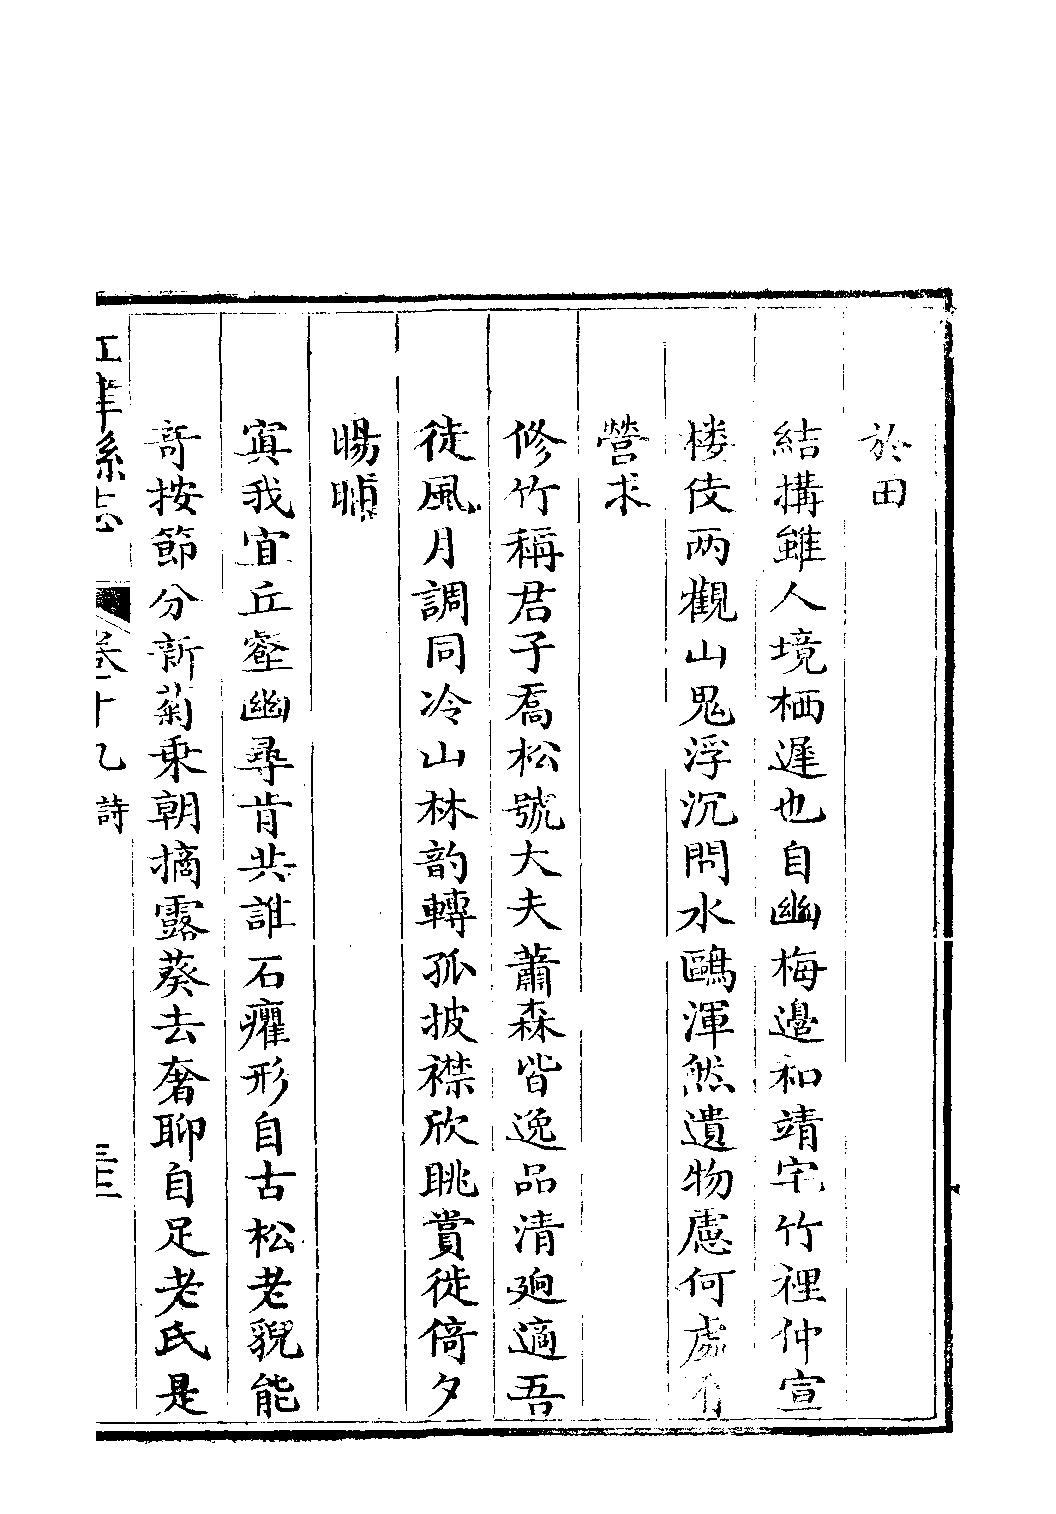 於田
結搆雖人境栖遲也自幽梅邊和靖宅竹裡仲宣
楼伎两觀山鬼浮沉問水鷗渾然遺物慮何處有
營求
修竹稱君子喬松號大夫蕭森皆逸品清迥適吾
徒風月調同冷山林韵轉孤披襟欣眺賞徙倚夕
暘
寘我宜丘壑幽尋肯共誰石癯形自古松老貌能
奇按節分新菊乗朝摘露葵去奢聊自足老氏是
江津縣志 卷十九 詩 三